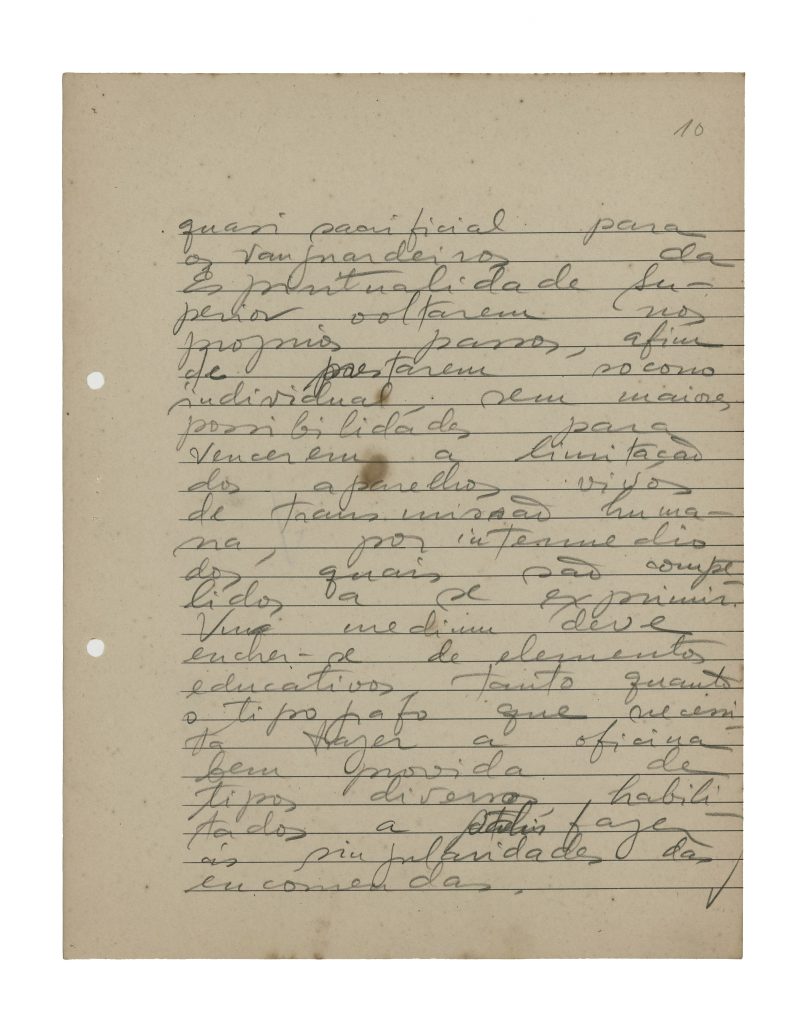 10
quasi sacrificial para
os vanguardeiros da
Espiritualidade Su-
perior voltarem nos
proprios passos, afim
de prestarem socorro
individual, sem maiores
possibilidades para
vencerem a limitação
dos aparelhos vivos
de transmissão huma-
na, por intermedio
dos quais são compe-
lidos a se exprimir.
Um medium deve
encher-se de elementos
educativos, tanto quanto
o tipografo que necessi-
ta trazer a oficina
bem provida de
tipos diversos habili
tados a satisfazer
ás singularidades das
encomendas.